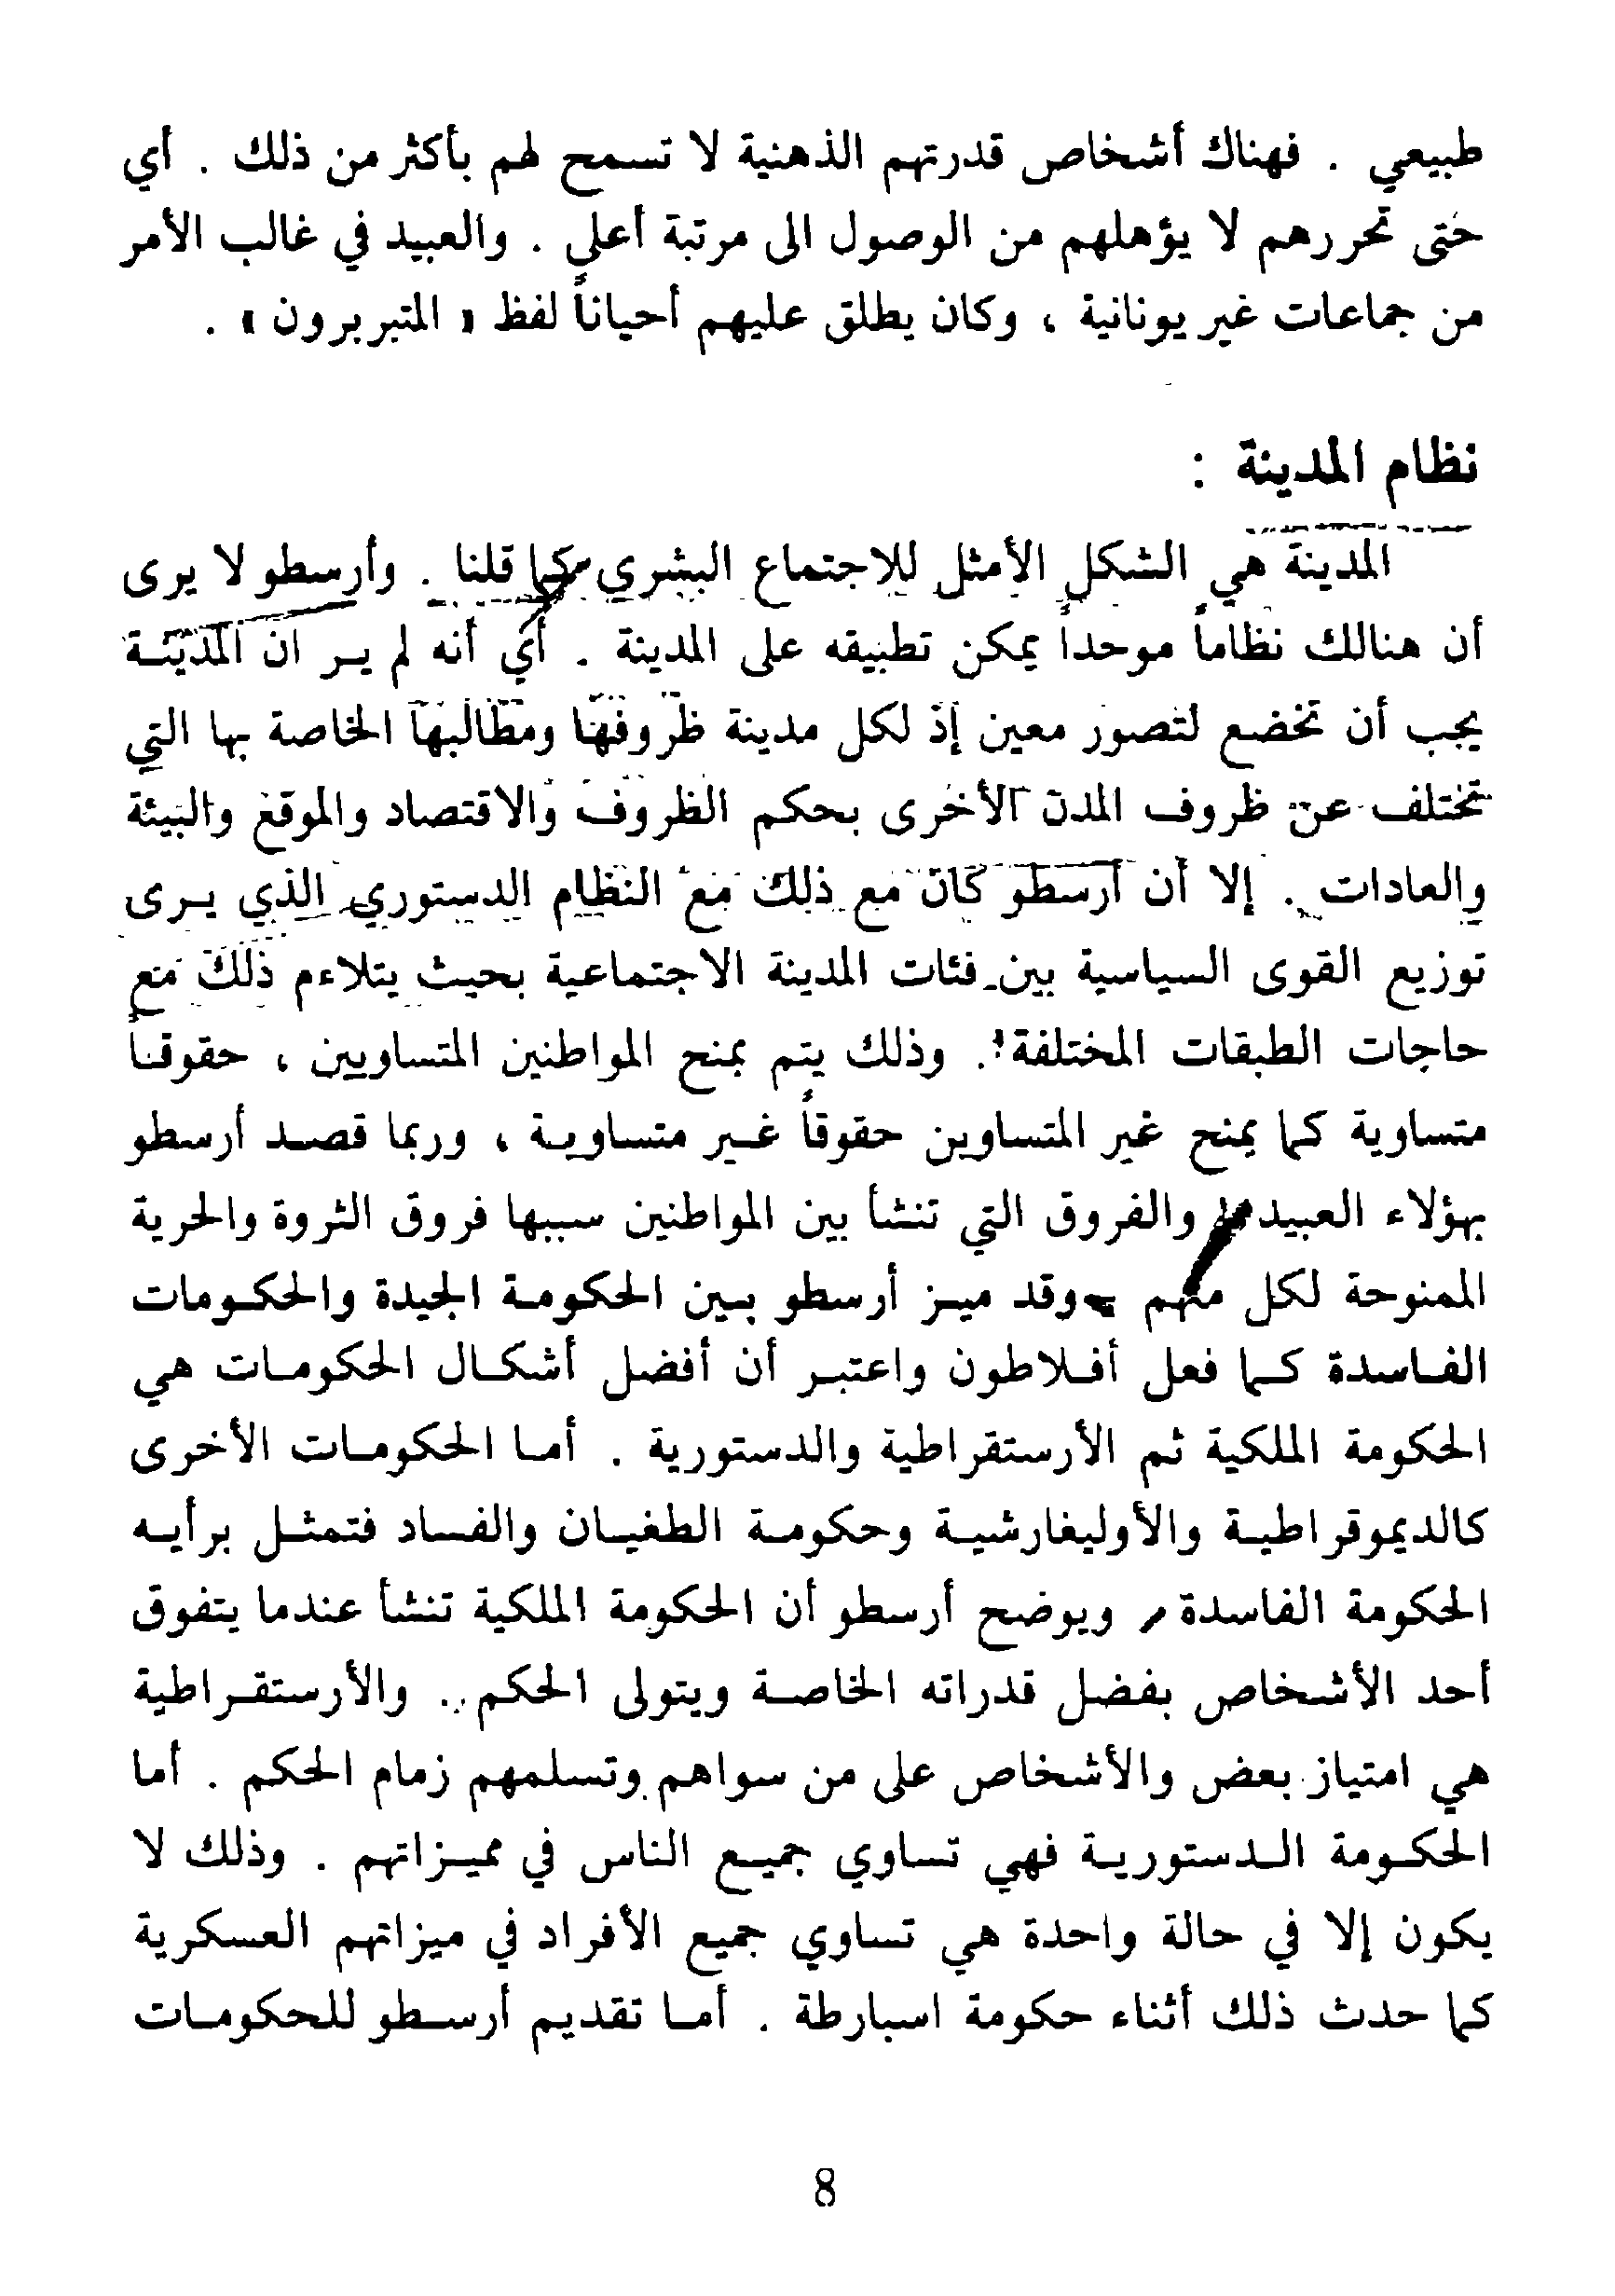 طبيعي . فهناك أشخاص قدرتهم الذهنية لا تسمح لهم بأكثر من ذلك . أي
حتى تحررهم لا يؤهلهم من الوصول الى مرتبة أعلى . والعبيد في غالب الأمر
من جماعات غير يونانية ، وكان يطلق عليهم أحياناً لفظ « المتبربرون » .
نظام المدينة :
المدينة هي الشكل الأمثل للاجتماع البشري كما قلنا . وأرسطو لا يرى
أن هنالك نظاماً موحداً يمكن تطبيقه على المدينة . أي أنه لم يـر ان المدينـة
يجب أن تخضع لتصور معين إذ لكل مدينة ظروفها ومطالبها الخاصة بها التي
تختلف عن ظروف المدن الأخرى بحكم الظروف والاقتصاد والموقع والبيئة
والعادات . إلا أن أرسطو كان مع ذلك مع النظام الدستوري الذي يـرى
توزيع القوى السياسية بين فئات المدينة الاجتماعية بحيث يتلاءم ذلك مع
حاجات الطبقات المختلفة . وذلك يتم بمنح المواطنين المتساويين ، حقوقـاً
متساوية كما يمنح غير المتساوين حقوقاً غـير متساويـة ، وربما قصـد أرسطو
بهؤلاء العبيد والفروق التي تنشأ بين المواطنين سببها فروق الثروة والحرية
الممنوحة لكل منهم وقد ميـز أرسطو بـين الحكومـة الجيدة والحكـومات
الفـاسدة كـما فعل أفـلاطون واعتبـر أن أفضـل أشكـال الحكومـات هي
الحكومة الملكية ثم الأرستقراطية والدستورية . أمـا الحكومـات الأخرى
كالديموقراطيـة والأوليغارشيـة وحكومـة الطغيـان والفسـاد فتمثـل برأيـه
الحكومة الفاسدة ، ويوضح أرسطو أن الحكومة الملكية تنشأ عندما يتفوق
أحد الأشـخاص بفضـل قدراته الخاصـة ويتولى الحكم .. والأرستقـراطية
هي امتياز بعض والأشخاص على من سواهم وتسلمهم زمام الحكم . أما
الحكـومة الـدستوريـة فهي تسـاوي جميـع الناس في مميـزاتهم . وذلك لا
يكون إلا في حالة واحدة هي تسـاوي جميع الأفراد في ميزاتهم العسكرية
كما حدث ذلك أثناء حكومة اسبارطة . أمـا تقديم أرسـطو للحكومـات
8